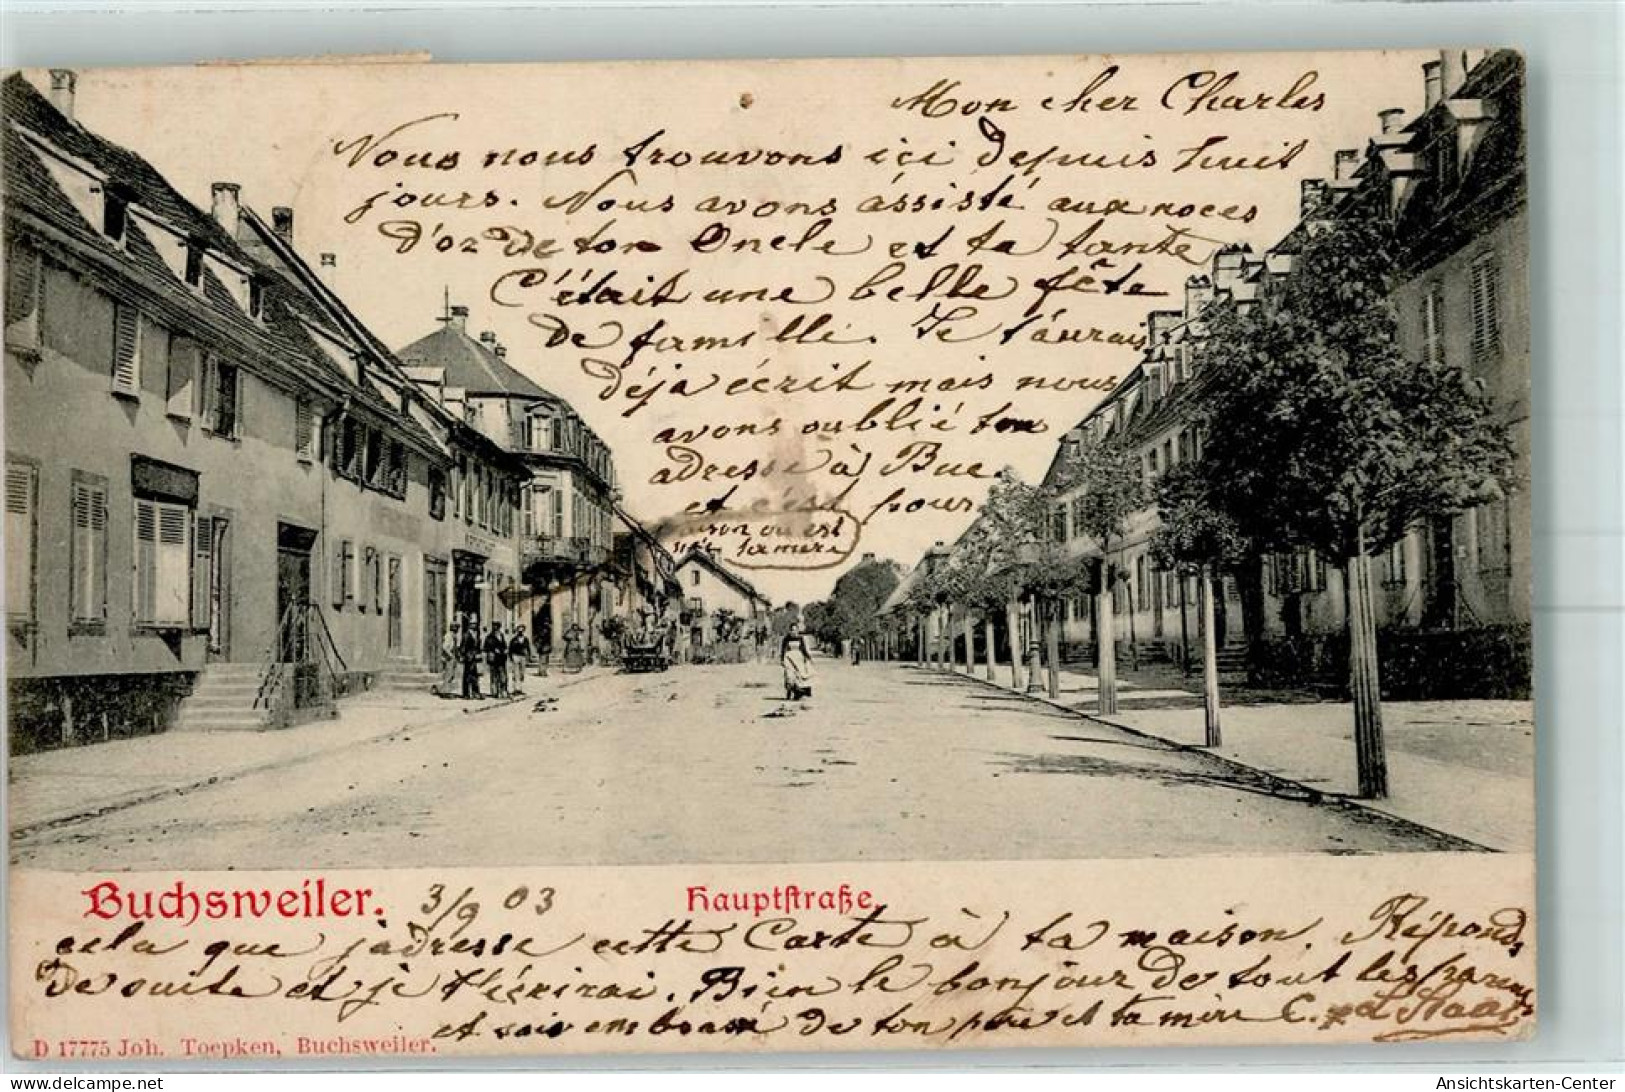 Mon cher Charles
Nous nous trouvons içi depuis huit
jours. Nous avons ássisté aux noces
d'or de ton Oncle et ta tante
C'était une belle fête
de famille. Je t'aurais
déja écrit mais nous
avons oublié ton
adresse à Bue
et c'est pour
maison ou est
née ta mère
Buchsweiler. 3/9 03 Hauptstraße.
cela que j'adresse cette Carte à ta maison. Réponds
de suite et je t'écrirai. Bien le bonjour de tout les parents
et sois embrassé de ton père et ta mère C.
D 17775 Joh. Toepken, Buchsweiler.
www.ansichtskartenversand.com
Ansichtskarten-Center